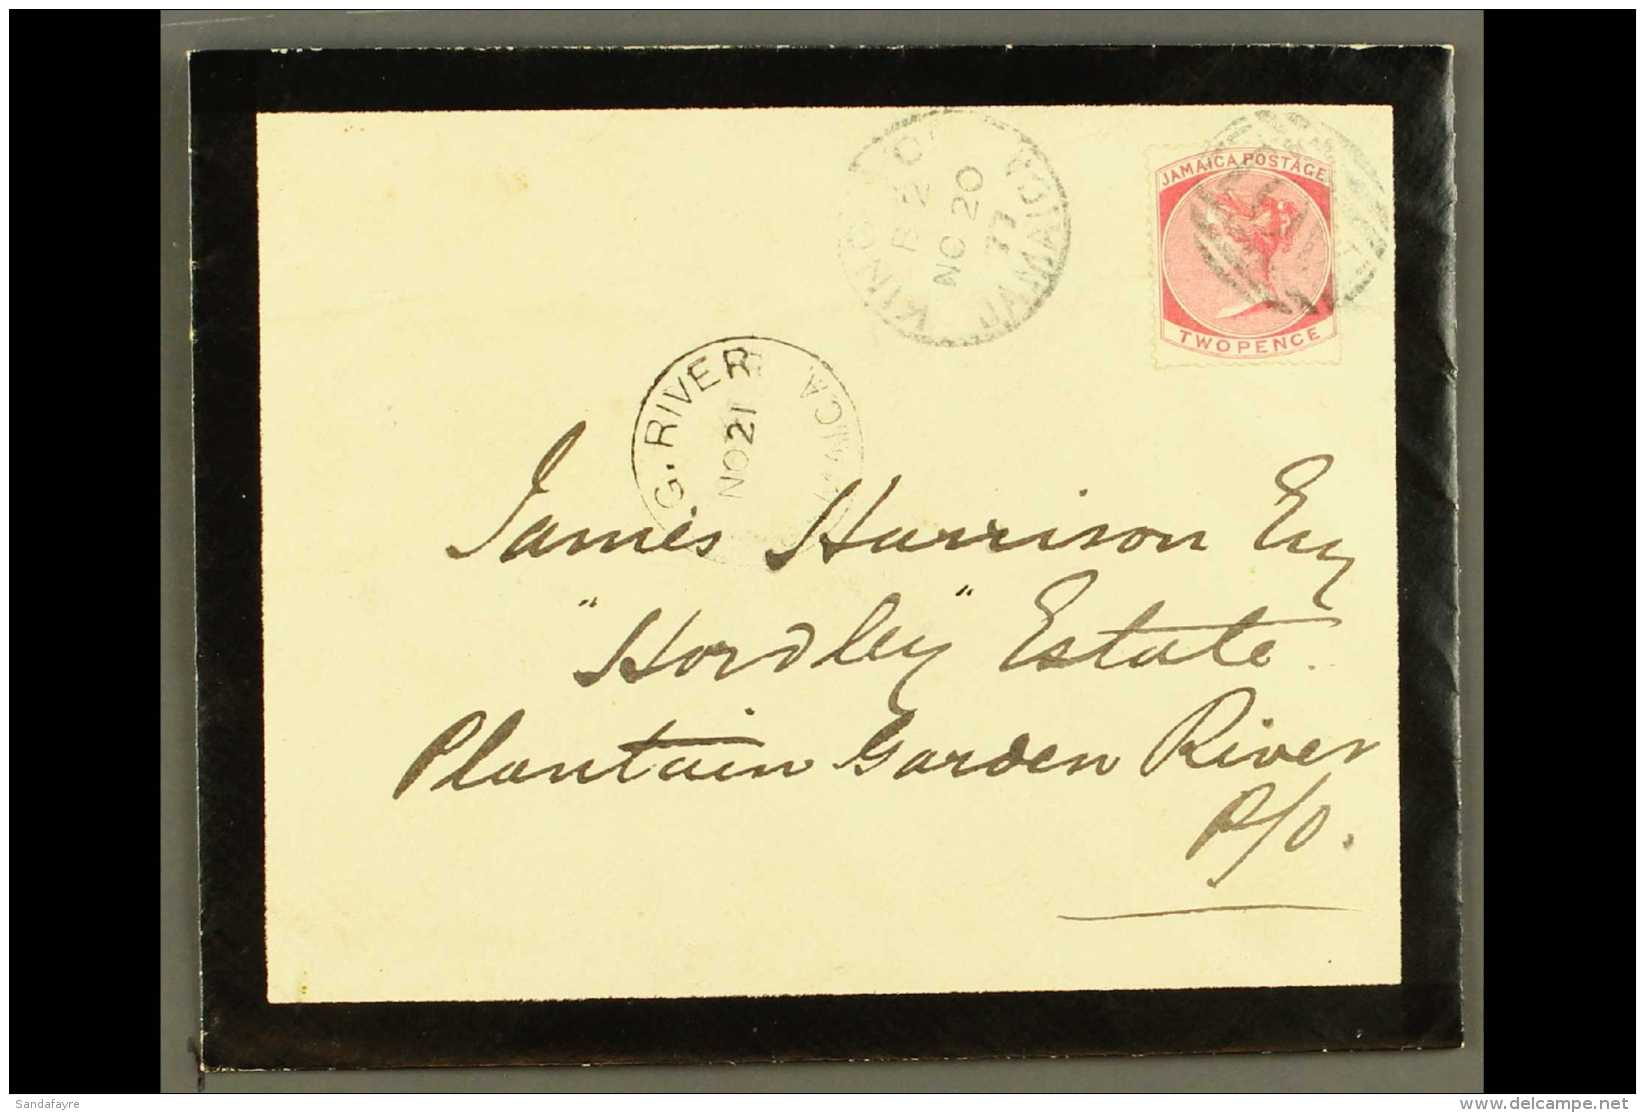 JAMAICA POSTAGE
TWO PENCE
NO 20
77
JAMAICA
G. RIVER
NO 21
James Harrison Esq
"Hordley" Estate
Plantain Garden River
P/O.
Sandafayre
delcampe.net